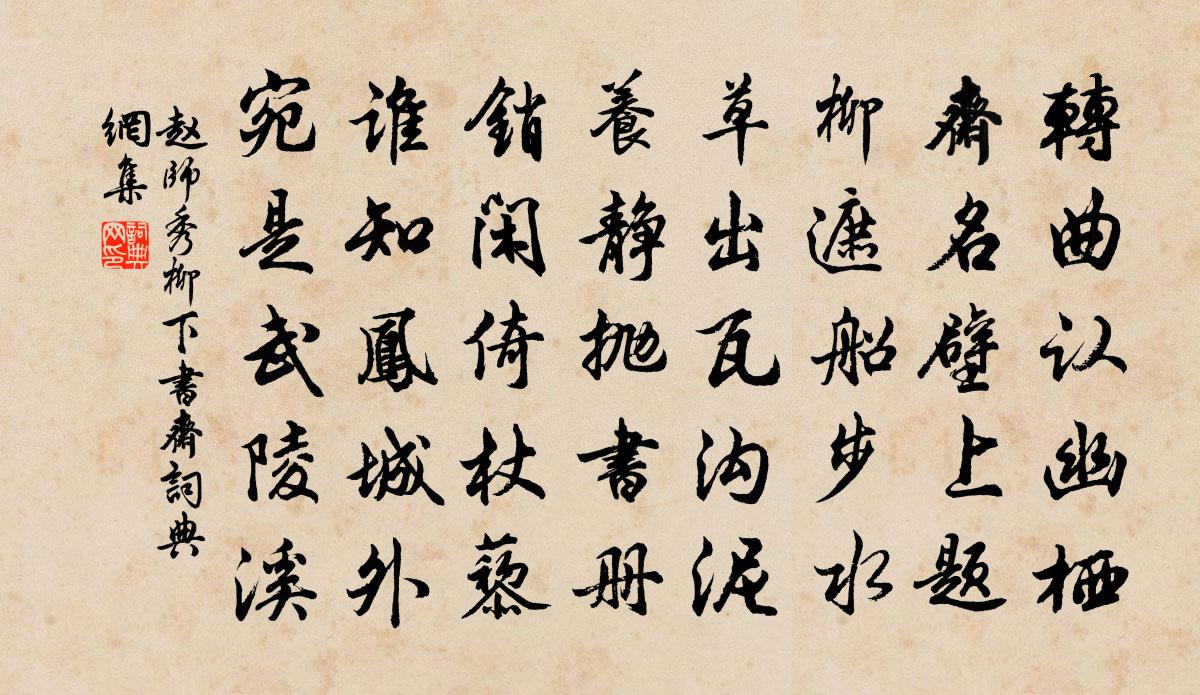 轉曲认幽栖
齋名壁上题
柳遮船步水
草出瓦沟泥
養静抛書册
銷闲倚杖藜
谁知鳳城外
宛是武陵溪
赵師秀柳下書齋詞典
網集
詞典
网印